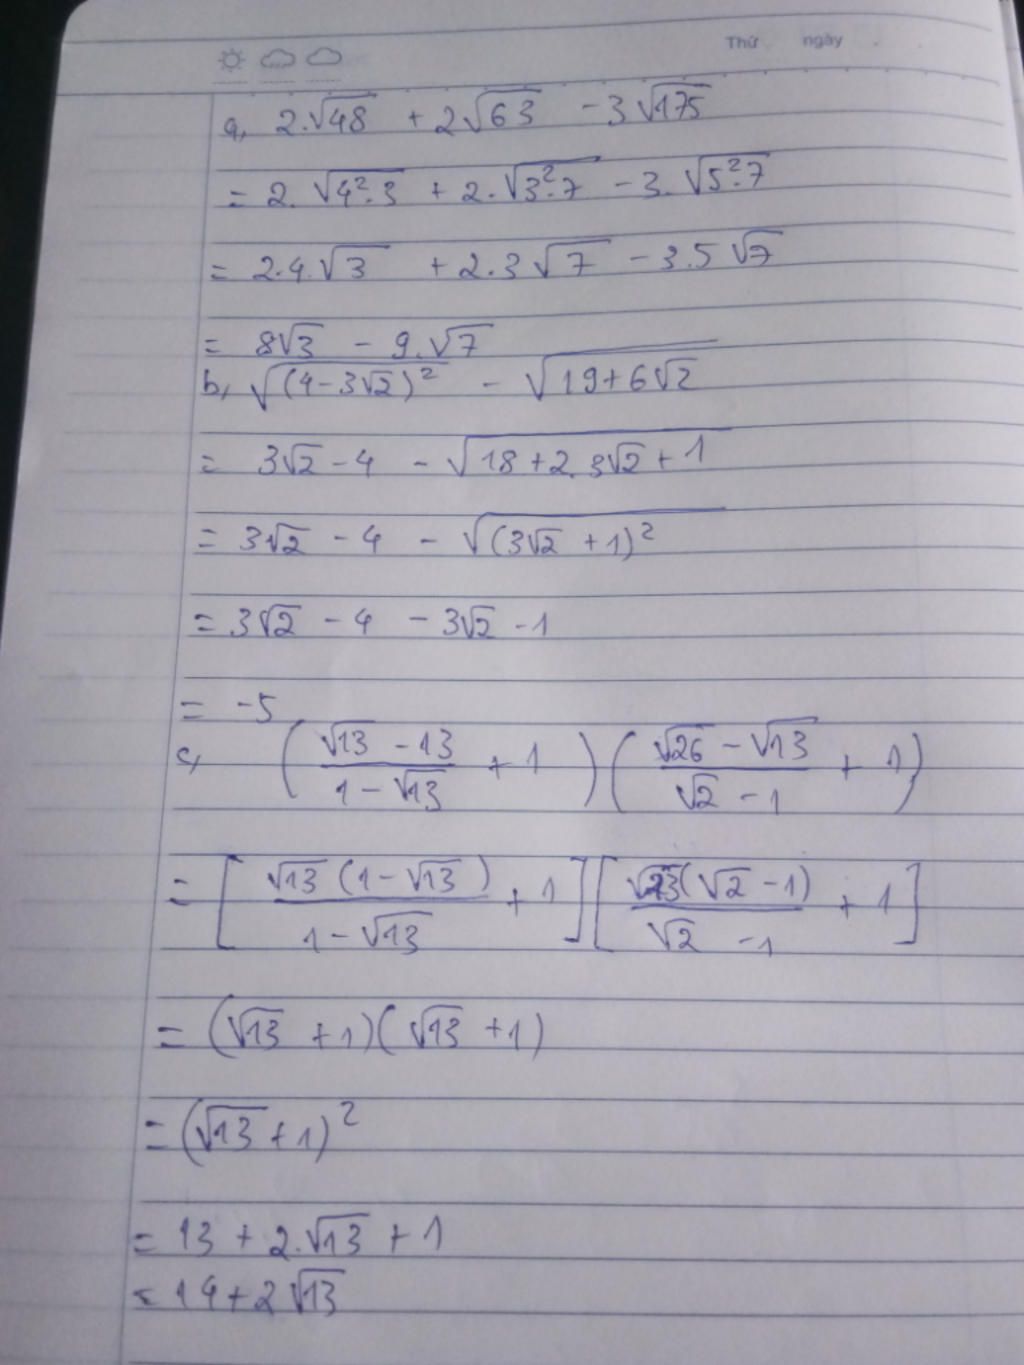 Thứ ngày
a, 2.√48 + 2√63 - 3√175
= 2. √(4².3) + 2.√(3².7) - 3. √(5².7)
= 2.4.√3 + 2.3√7 - 3.5 √7
= 8√3 - 9.√7
b, √((4-3√2)²) - √(19+6√2)
= 3√2 - 4 - √(18+2.3√2+1)
= 3√2 - 4 - √((3√2 +1)²)
= 3√2 - 4 - 3√2 - 1
= -5
c, ((√13 - 13)/(1-√13) + 1)((√26 - √13)/(√2 - 1) + 1)
= [(√13 (1-√13))/(1-√13) + 1][(√13(√2 - 1))/(√2 - 1) + 1]
= (√13 + 1)(√13 + 1)
= (√13 + 1)²
= 13 + 2.√13 + 1
= 14 + 2√13